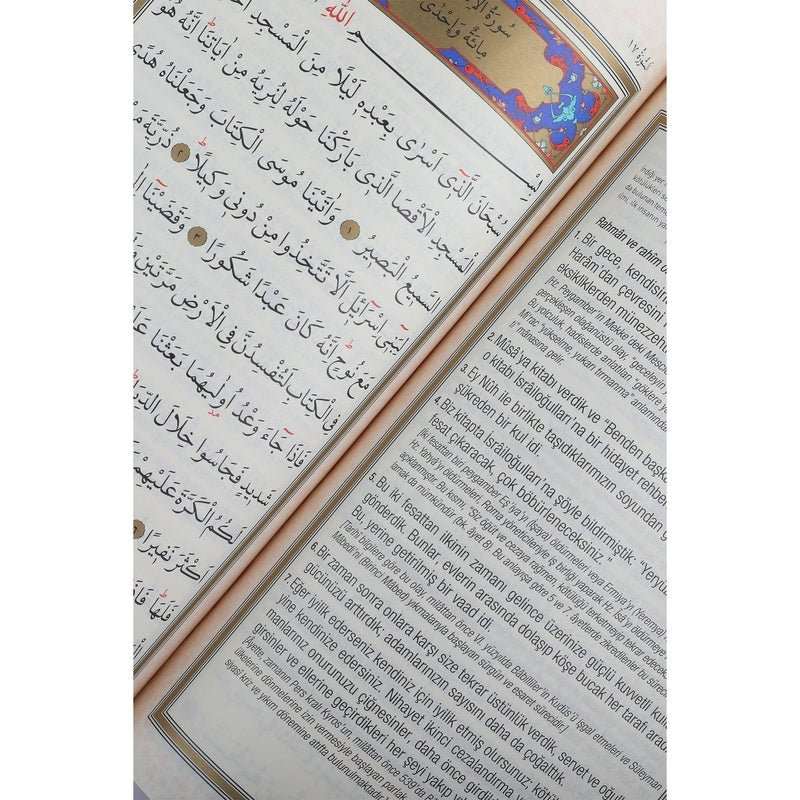 سُورَةُ الْاِ
مِائَةٌ وَاِحْدٰى
سُورَةُ ١٧
بِسْمِ اللّٰهِ
سُبْحَانَ الَّذ۪ٓي اَسْرٰى بِعَبْدِه۪ لَيْلًا مِنَ الْمَسْجِدِ
الْمَسْجِدِ الْاَقْصَا الَّذ۪ي بَارَكْنَا حَوْلَهُ لِنُرِيَهُ مِنْ اٰيَاتِنَاۜ اِنَّهُ هُوَ
السَّم۪يعُ الْبَص۪يرُ ١ وَاٰتَيْنَا مُوسَى الْكِتَابَ وَجَعَلْنَاهُ هُدًى
لِبَن۪ٓي اِسْرَٓائ۪لَ اَلَّا تَتَّخِذُوا مِنْ دُون۪ي وَك۪يلًاۜ ٢ ذُرِّيَّةَ
مَعَ نُوحٍۜ اِنَّهُ كَانَ عَبْدًا شَكُورًا ٣ وَقَضَيْنَٓا
فِي الْكِتَابِ لَتُفْسِدُنَّ فِي الْاَرْضِ مَرَّتَيْنِ
فَاِذَا جَٓاءَ وَعْدُ اُو۫لٰيهُمَا بَعَثْنَا
شَد۪يدٍ فَجَاسُوا خِلَالَ
لَكُمُ الْكَرَّةَ عَلَيْهِمْ
اَكْثَرَ نَف۪يرًا ٦
فَلَهَاۜ
Rahmân ve rahîm
1. Bir gece, kendisin
Harâm'dan çevresini
eksikliklerden münezzeh
[Hz. Peygamber'in Mekke'deki
gerçekleşen olağanüstü olay, "geceleyin
Bu yolculuk, hadislerde anlatılan "göklere
Mi'rac "yükselme, yukarı tırmanma" anlamında
ti" mânasına gelir.
2. Mûsâ'ya kitabı verdik ve "Benden başka
o kitabı İsrâiloğulları'na bir hidayet rehbe
3. Ey Nûh ile birlikte taşıdıklarımızın soyundan
şükreden bir kul idi.
4. Biz kitapta İsrâiloğulları'na şöyle bildirmiştik: "Yeryü
fesat çıkaracak, çok böbürleneceksiniz."
[İki fesattan biri peygamber Eş'iya'yı (İşaya) öldürmeleri veya Ermiya'yı (Yeremya)
Hz. Yahyâ'yı öldürmeleri, Roma yöneticileriyle iş birliği yaparak Hz. Îsâ'yı öldürme
açıklanmıştır. Bu kısmı, "Siz öğüt ve cezaya rağmen, kötülüğü terketmeyip tekrar edecek
lamak da mümkündür. (bk. âyet 8). Bu anlayışa göre 5 ve 7. âyetlerde zikredilenler bu
5. Bu iki fesattan ilkinin zamanı gelince üzerinize güçlü kuvvetli kul
gönderdik. Bunlar, evlerin arasında dolaşıp köşe bucak her tarafı aradı
Bu, yerine getirilmiş bir vaad idi.
[Tarihî bilgilere göre bu olay, milâttan önce VI. yüzyılda Bâbilliler'in Kudüs'ü işgal etmeleri ve Süleyman
Mâbedi'ni (Birinci Mâbed) yıkmalarıyla başlayan sürgün ve esaret sürecidir.]
6. Bir zaman sonra onlara karşı size tekrar üstünlük verdik, servet ve oğull
gücünüzü arttırdık; adamlarınızın sayısını daha da çoğalttık.
7. Eğer iyilik ederseniz kendiniz için iyilik etmiş olursunuz; kötü
yine kendinize edersiniz. Nihayet ikinci cezalandırma
manlarınız onurunuzu çiğnesinler, daha önce girdi
girsinler ve ellerine geçirdikleri her şeyi yakıp
[Âyette, zamanın Pers kralı Kyros'un, milâttan önce 539'da
ülkelerine dönmelerine izin vermesiyle başlayan parlak
siyasî kriz ve yıkım dönemine atıfta bulunulmaktadır.